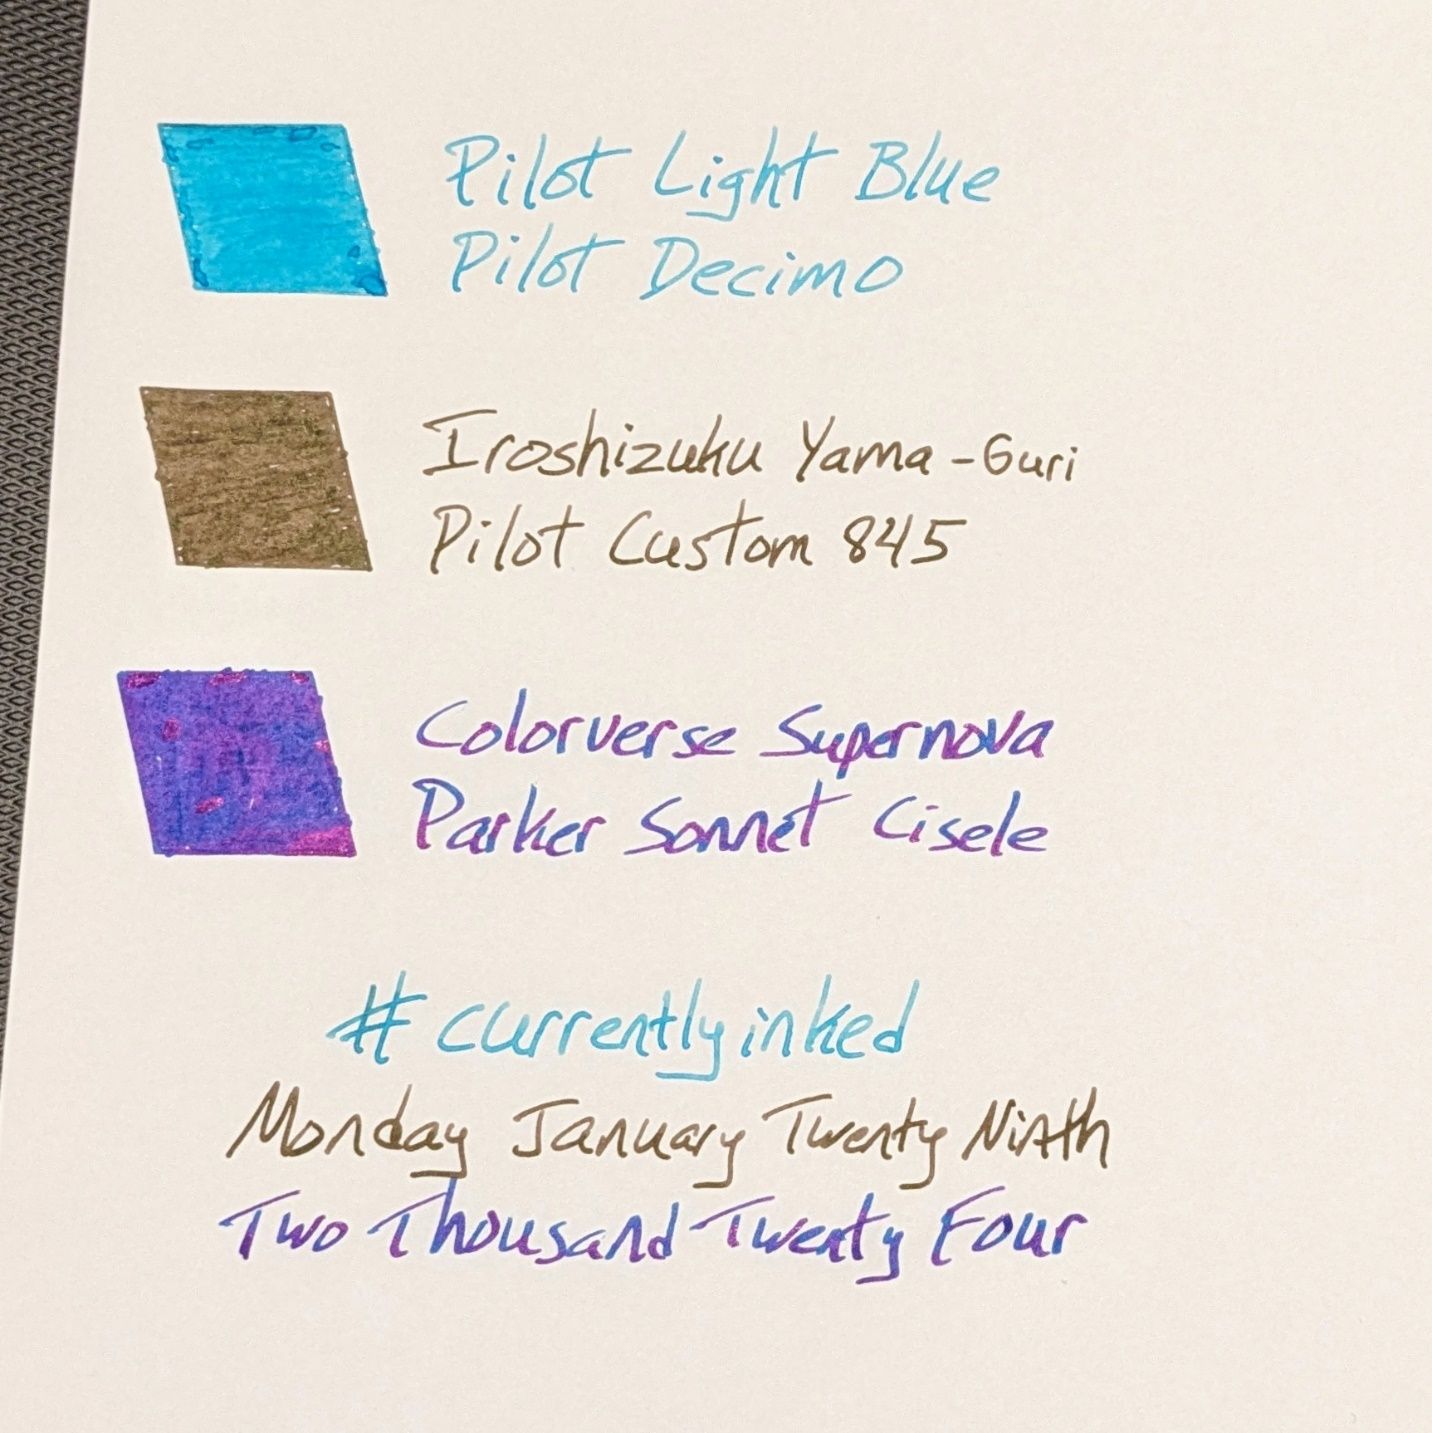 Pilot Light Blue
Pilot Decimo
Iroshizuku Yama-Guri
Pilot Custom 845
Colorverse Supernova
Parker Sonnet Cisele
#currentlyinked
Monday January Twenty Ninth
Two Thousand Twenty Four